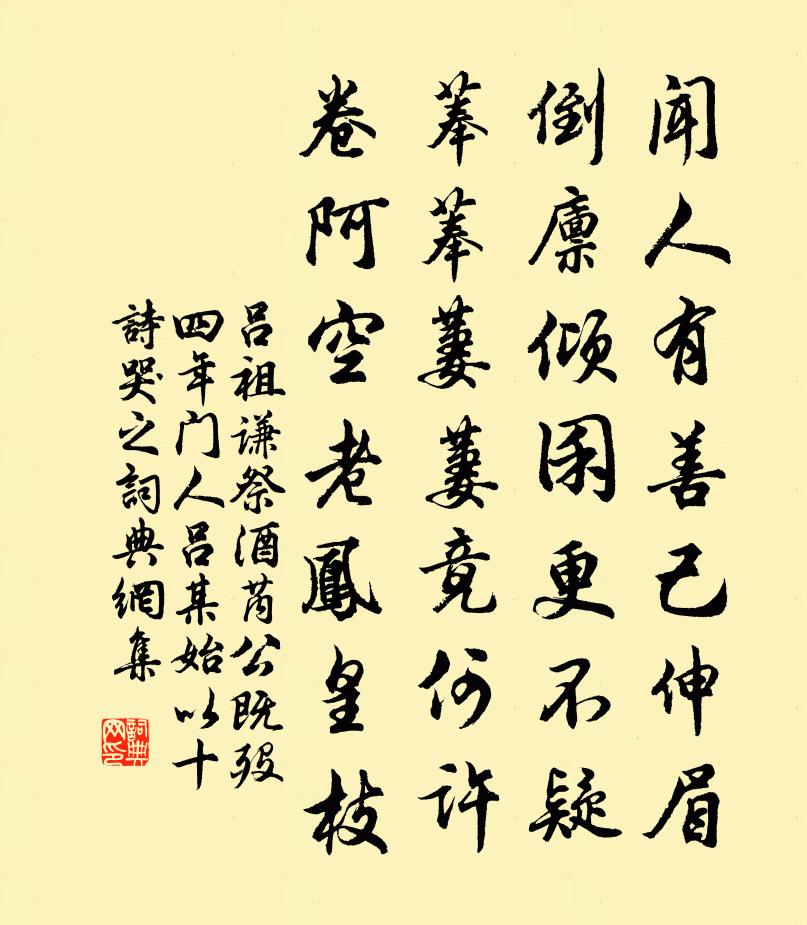 闻人有善己伸眉
倒廪倾囷更不疑
菶菶萋萋竟何许
卷阿空老鳳皇枝
吕祖谦祭酒芮公既殁
四年门人吕某始以十
詩哭之詞典網集
詞典
网印